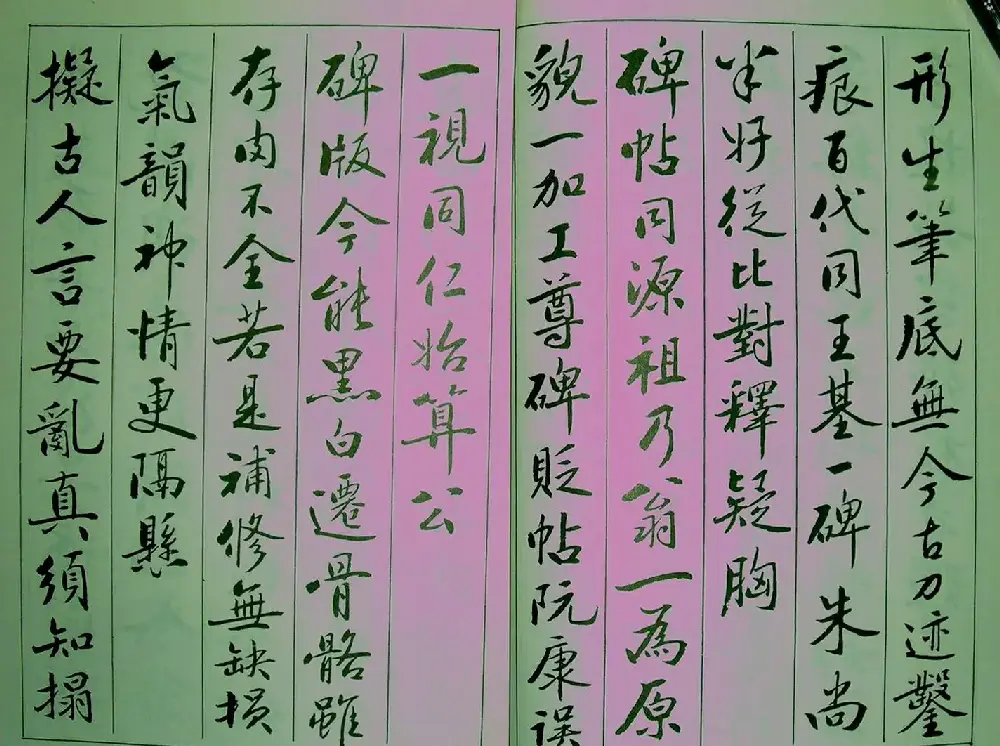 形生筆底無今古刀迹鑿
痕百代同王基一碑朱尚
半好從比對釋疑胸
碑帖同源祖乃翁一為原
貌一加工尊碑貶帖阮康誤
一視同仁始算公
碑版今能黑白遷骨骼雖
存肉不全若是補修無缺損
氣韻神情更隔懸
擬古人言要亂真須知搨